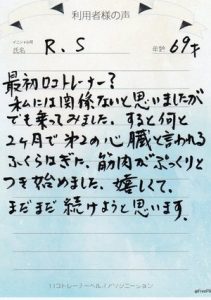 利用者様の声
イニシャル可
氏名 R.S 年齢 69才
最初ロコトレーナー?
私には関係ないと思いましたが
でも乗ってみました。すると何と
2ヶ月で第2の心臓と言われる
ふくらはぎに、筋肉がぷっくりと
つき始めました。嬉しくて、
まだまだ続けようと思います。
ロコトレーナーヘルメアソシエーション